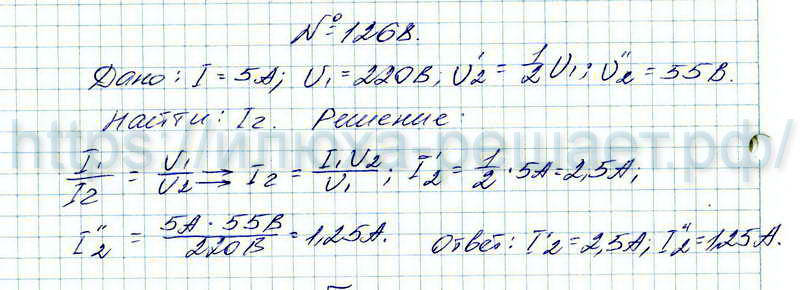 № 1268.
Дано: I = 5А; U₁ = 220В; U₂' = 1/2 U₁; U₂'' = 55В.
Найти: I₂. Решение:
https://илюха-решает.рф/
I₁/I₂ = U₁/U₂ → I₂ = I₁U₂/U₁; I₂' = 1/2 · 5А = 2,5А;
I₂'' = 5А · 55В/220В = 1,25А. Ответ: I₂' = 2,5А; I₂'' = 1,25А.